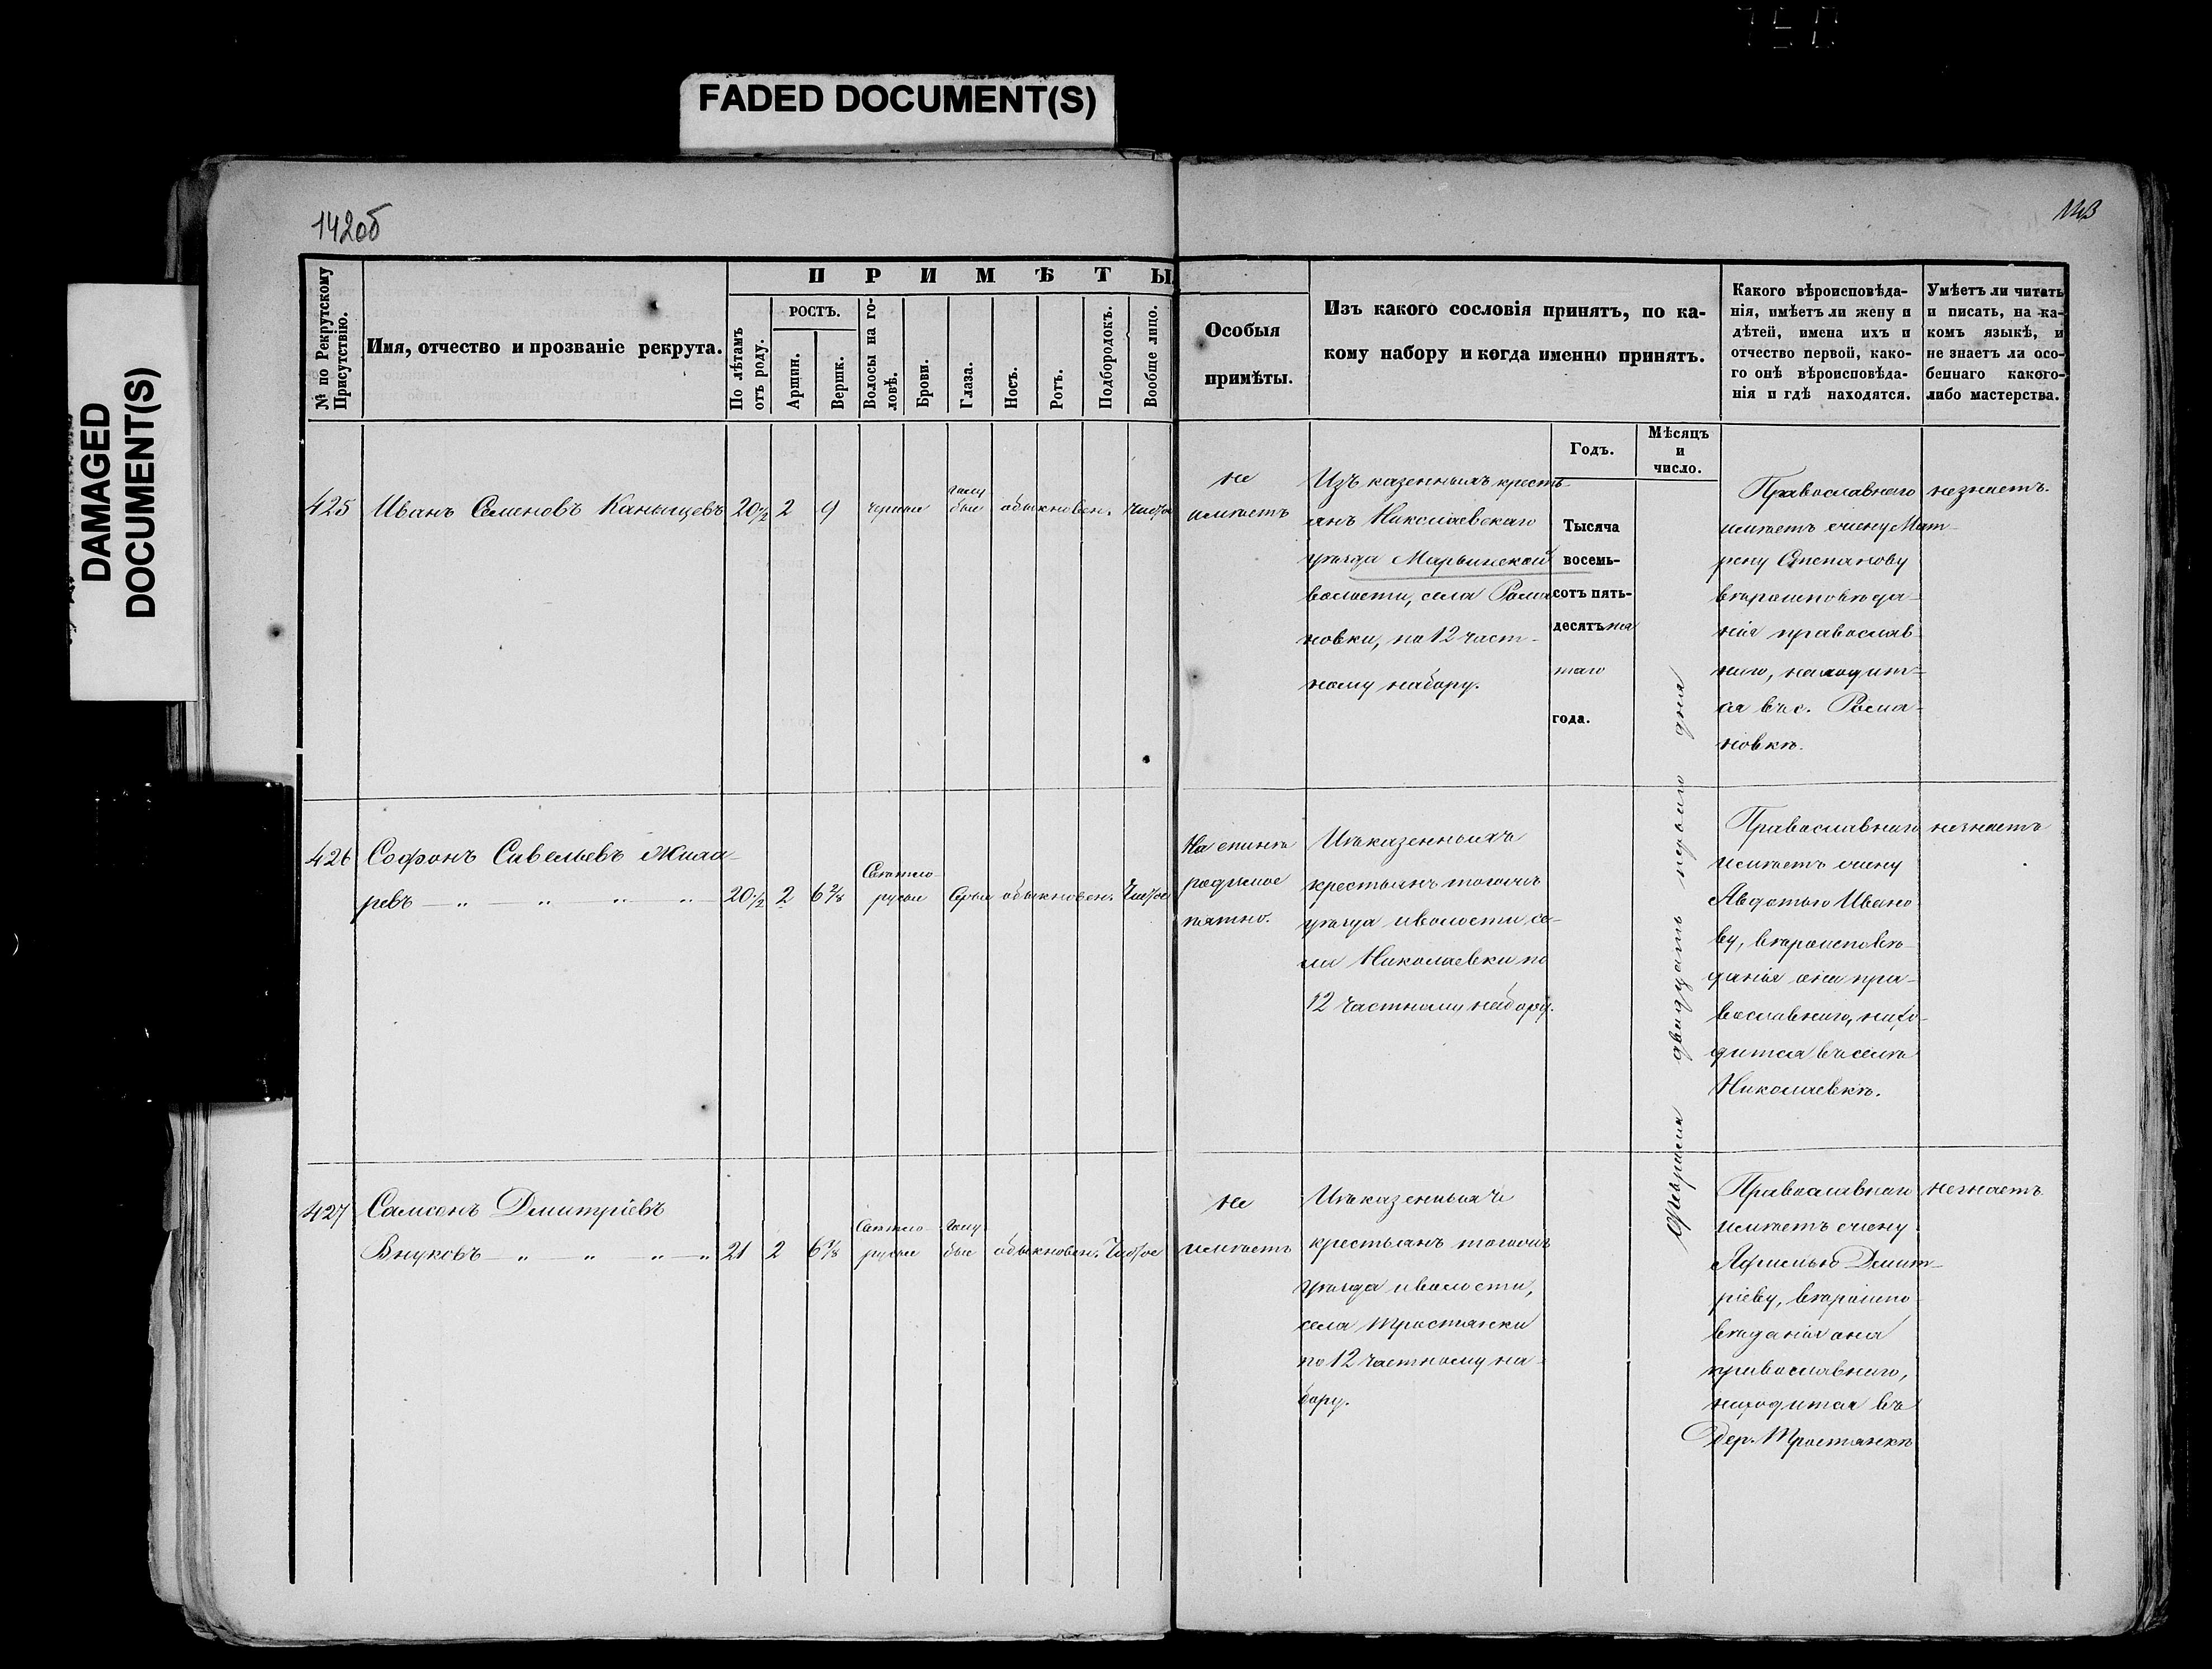 FADED DOCUMENT(S)
DAMAGED
DOCUMENT(S)
142об
143
ПРИМѢТЫ.
№ по Рекрутскому
Присутствію.
Имя, отчество и прозваніе рекрута.
По лѣтамъ
отъ роду.
РОСТЪ.
Аршин.
Вершк.
Волосы на го-
ловѣ.
Брови.
Глаза.
Носъ.
Ротъ.
Подбородокъ.
Вообще лицо.
Особыя
примѣты.
Изъ какого сословія принятъ, по ка-
кому набору и когда именно принятъ.
Какого вѣроисповѣда-
нія, имѣетъ ли жену и
дѣтей, имена ихъ и
отчество первой, како-
го онѣ вѣроисповѣда-
нія и гдѣ находятся.
Умѣетъ ли читать
и писать, на ка-
комъ языкѣ, и
не знаетъ ли осо-
беннаго какого-
либо мастерства.
Годъ.
Мѣсяцъ
и
число.
425 Иванъ Семеновъ Канищевъ 20 1/2 2 9 черные
голу
бые обыкновен. чистое
не
имѣетъ
Изъ казенныхъ кресть-
янъ Николаевскаго
уѣзда Марьинской
волости, села Рома
новки, по 12 част-
ному набору.
Тысяча
восемь-
сотъ пять-
десятъ пя
таго
года.
Февраля двадцать перваго дня
Православнаго
имѣетъ жену Мат-
рену Степанову
вѣроисповѣда-
нія православ-
наго, находит-
ся въ с. Рома-
новкѣ.
незнаетъ.
426 Софонъ Савельевъ Жила-
ревъ — „ — „ „ „ 20 1/2 2 6 2/8
Свѣтло-
русые Серые обыкновен. Чистое
На спинѣ
родимое
пятно.
Изъ казенныхъ
крестьянъ тогожъ
уѣзда и волости, се-
ла Николаевки по
12 частному набору.
Православнаго
имѣетъ жену
Авдотью Ивано
ву, вѣроисповѣ-
данія она пра-
вославнаго, нахо-
дится въ селѣ
Николаевкѣ.
незнаетъ
427 Самсонъ Дмитріевъ
Внуковъ — „ — „ „ — „ 21 2
Свѣтло-
русые
голу
бые обыкновен. Чистое
не
имѣетъ
Изъ казенныхъ
крестьянъ тогожъ
уѣзда и волости,
села Тростянки
по 12 частному на-
бору.
Православнаго
имѣетъ жену
Афимью Дмит-
ріеву, вѣроиспо-
вѣданія она
православнаго,
находится въ
дер. Тростянкѣ
незнаетъ.